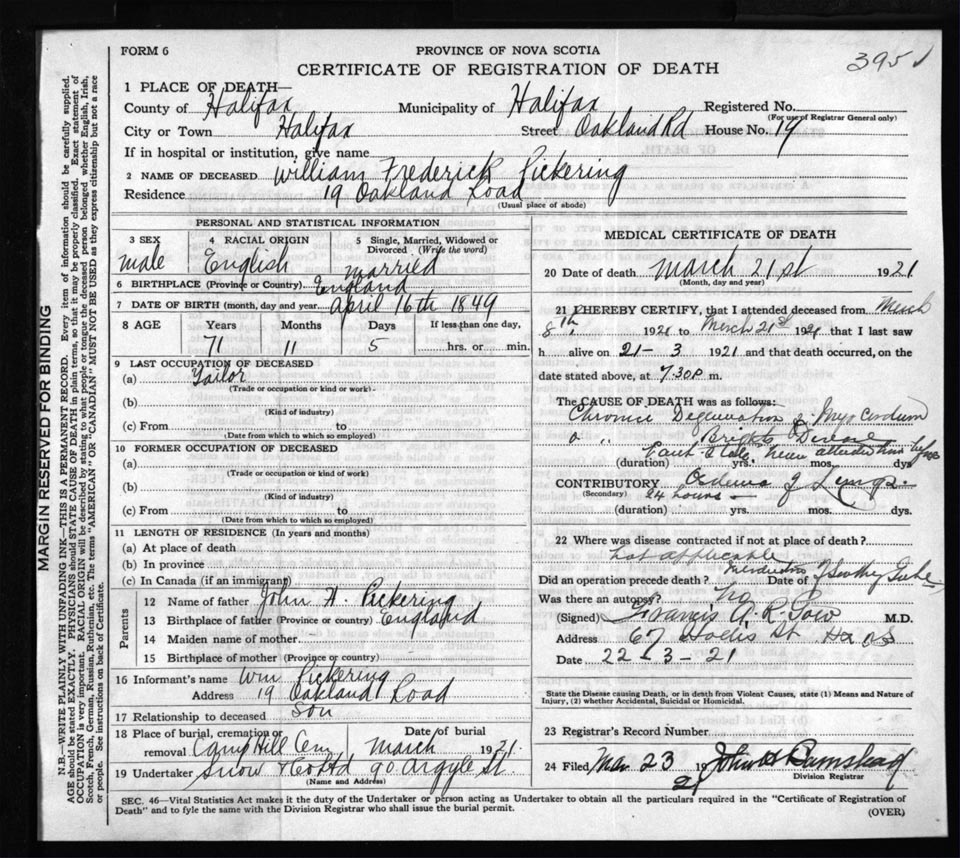 FORM 6
PROVINCE OF NOVA SCOTIA
395
CERTIFICATE OF REGISTRATION OF DEATH
1 PLACE OF DEATH—
County of Halifax Municipality of Halifax Registered No.
(For use of Registrar General only)
City or Town Halifax Street Oakland Rd House No. 19
If in hospital or institution, give name
2 NAME OF DECEASED William Frederick Pickering
Residence 19 Oakland Road
(Usual place of abode)
PERSONAL AND STATISTICAL INFORMATION
3 SEX 4 RACIAL ORIGIN 5 Single, Married, Widowed or Divorced (Write the word)
male English married
6 BIRTHPLACE (Province or Country) England
7 DATE OF BIRTH (month, day and year April 16th 1849
8 AGE Years Months Days If less than one day,
71 11 5 hrs. or min.
9 LAST OCCUPATION OF DECEASED
(a) Tailor
(Trade or occupation or kind or work)
(b)
(Kind of industry)
(c) From to
(Date from which to which so employed)
10 FORMER OCCUPATION OF DECEASED
(a)
(Trade or occupation or kind of work)
(b)
(Kind of industry)
(c) From to
(Date from which to which so employed)
11 LENGTH OF RESIDENCE (In years and months)
(a) At place of death
(b) In province
(c) In Canada (if an immigrant)
Parents
12 Name of father John H. Pickering
13 Birthplace of father (Province or country) England
14 Maiden name of mother
15 Birthplace of mother (Province or country)
16 Informant's name Wm Pickering
Address 19 Oakland Road
17 Relationship to deceased Son
18 Place of burial, cremation or Date of burial
removal Camp Hill Cem March 1921.
19 Undertaker Snow & Co Ltd 90 Argyle St.
(Name and Address)
MEDICAL CERTIFICATE OF DEATH
20 Date of death March 21st 1921
(Month, day and year)
21 I HEREBY CERTIFY, that I attended deceased from March
8th, 1921 to March 21st 1921 that I last saw
h alive on 21-3 1921 and that death occurred, on the
date stated above, at 7.30 P m.
The CAUSE OF DEATH was as follows:
Chronic Degeneration of Myocardium
" Brights Disease
Cant State, never attended him before
(duration) yrs. mos. dys
CONTRIBUTORY Oedema of Lungs.
(Secondary) 24 hours
(duration) yrs. mos. dys.
22 Where was disease contracted if not at place of death?
not applicable
Did an operation precede death? Date of
Was there an autopsy? no
(Signed) Francis M.D.
Address 67 Hollis St
Date 22-3-21
State the Disease causing Death, or in death from Violent Causes, state (1) Means and Nature of
Injury, (2) whether Accidental, Suicidal or Homicidal.
23 Registrar's Record Number
24 Filed Mar 23 19 21
Division Registrar
SEC. 46—Vital Statistics Act makes it the duty of the Undertaker or person acting as Undertaker to obtain all the particulars required in the "Certificate of Registration of
Death" and to fyle the same with the Division Registrar who shall issue the burial permit.
(OVER)
MARGIN RESERVED FOR BINDING
N.B.—WRITE PLAINLY WITH UNFADING INK—THIS IS A PERMANENT RECORD. Every item of information should be carefully supplied.
AGE should be stated EXACTLY. PHYSICIANS should STATE CAUSE OF DEATH in plain terms, so that it may be properly classified. Exact statement of
OCCUPATION is very important. RACIAL ORIGIN will be described by stating to what people or tongue the deceased person belonged whether English, Irish,
Scotch, French, German, Russian, Ruthenian, etc. The terms "AMERICAN" OR "CANADIAN" MUST NOT BE USED as they express citizenship but not a race
or people. See instructions on back of Certificate.